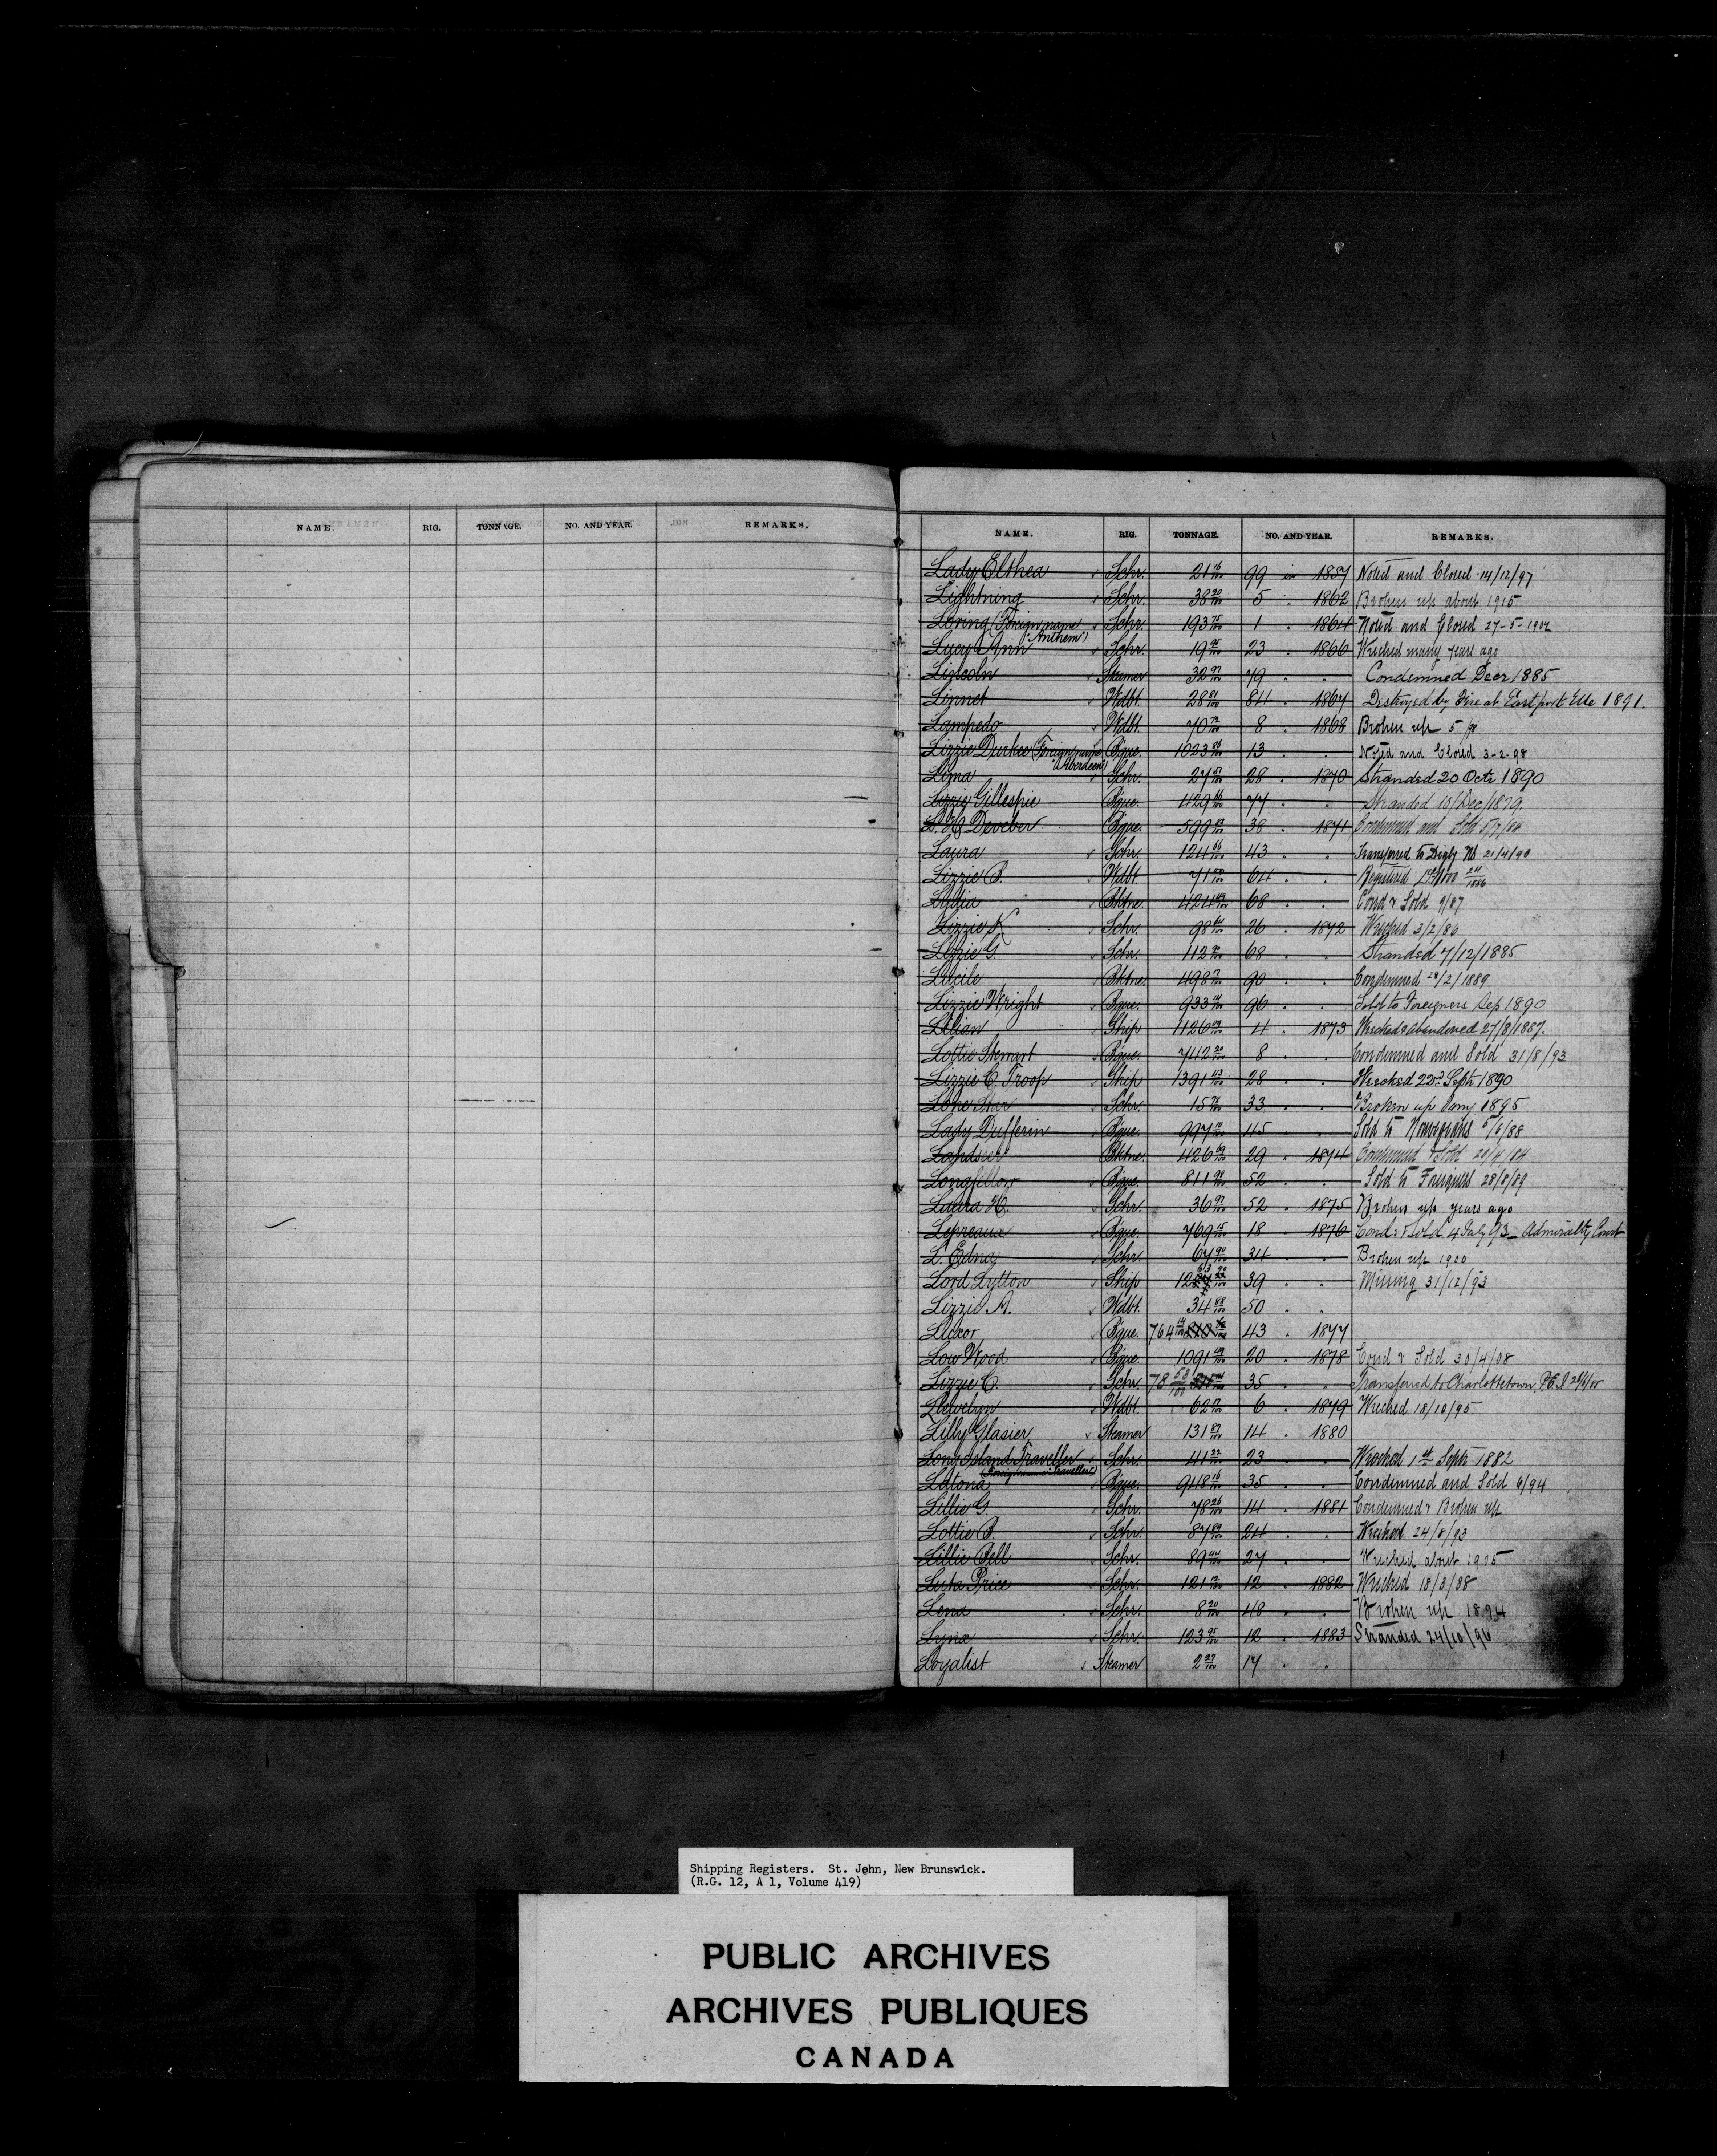 NAME. RIG. TONNAGE. NO. AND YEAR. REMARKS.
NAME. RIG. TONNAGE. NO. AND YEAR. REMARKS.
Lady Elthea Schr. 21 16/100 99 in 1857 Noted and Closed 14/12/97
Lightning Schr. 38 20/100 5 . 1862 Broken up about 1915
Loring (Foreign name Schr. 193 1 . 1864 Noted and Closed 27-5-1902
"Anthem")
Lucy Ann Schr. 19 23 . 1866 Wrecked many years ago
Lincoln Steamer 32 97/100 79 . . Condemned Decr 1885
Linnet Wdbt. 28 81/100 84 . 1867 Destroyed by Fire at Eastport 1891.
Lampedo Wdbt. 70 8 . 1868 Broken up
Lizzie Durkee (Foreign name Bque. 1023 13 . . Noted and Closed 3-2-98
"Aberdeen")
Lima Schr. 27 28 . 1870 Stranded 20 Octr 1890
Lizzie Gillespie Bque. 429 77 . . Stranded 10/Dec/1879
L. H. Deveber Bque. 599 38 . 1871 Condemned and Sold
Laura Schr. 124 43 . . Transferred to Digby NS 21/4/90
Lizzie B. Wdbt. 71 64 . . Registered
Lydia Bktne. 424 68 . . Cond & Sold 9/87
Lizzie K Schr. 98 26 . 1872 Wrecked 3/2/86
Lizzie G. Schr. 112 68 . . Stranded 7/12/1885
Lucile Bktne. 498 90 . . Condemned 28/2/1889
Lizzie Wright Bque. 933 96 . . Sold to Foreigners Sep 1890
Lilian Ship 1126 4 . 1873 Wrecked & abandoned 27/8/1887.
Lottie Stewart Bque. 742 20/100 8 . . Condemned and Sold 31/8/93
Lizzie C. Troop Ship 1391 43/100 28 . . Wrecked 22nd Septr 1890
Lone Star Schr. 15 33 . . Broken up Jany 1895
Lady Dufferin Bque. 997 45 . . Sold to Norwegians 5/6/88
Landsier Bktne. 426 29 . 1874 Condemned & Sold
Longfellow Bque. 811 52 . . Sold to Foreigners 28/8/89
Laura H. Schr. 36 52 . 1875 Broken up years ago
Lepreaux Bque. 769 18 . 1876 Cond. & Sold 4 July 93 - Admiralty Court
L. Edna Schr. 67 90/100 34 . . Broken up 1900
Lord Lytton Ship 39 . . Missing 31/12/93
Lizzie A. Wdbt. 34 50 . .
Luxor Bque. 764 14/100 43 . 1877
Low Wood Bque. 1091 20 . 1878 Cond & Sold 30/4/08
Lizzie C. Schr. 78 53/100 35 . . Transferred to Charlottetown, P.E.I
Llewelyn Wdbt. 62 6 . 1879 Wrecked 18/10/95
Lilly Glasier Steamer 131 14 . 1880
Long Island Traveller Schr. 41 22/100 23 . . Wrecked 1st Septr 1882
(Foreign name "Traveller")
Latona Bque. 948 16/100 35 . . Condemned and Sold 6/94
Lillie G Schr. 78 26/100 14 . 1881 Condemned & Broken up
Lottie B. Schr. 87 24 . . Wrecked 24/8/93
Lillie Bell Schr. 89 44/100 27 . . Wrecked about 1905
Luta Price Schr. 121 12 . 1882 Wrecked 18/3/08
Lena Schr. 8 20/100 48 . . Broken up 1894
Lynx Schr. 123 95/100 12 . 1883 Stranded 24/10/96
Loyalist Steamer 2 27/100 17 . .
Shipping Registers. St. John, New Brunswick.
(R.G. 12, A 1, Volume 419)
PUBLIC ARCHIVES
ARCHIVES PUBLIQUES
CANADA